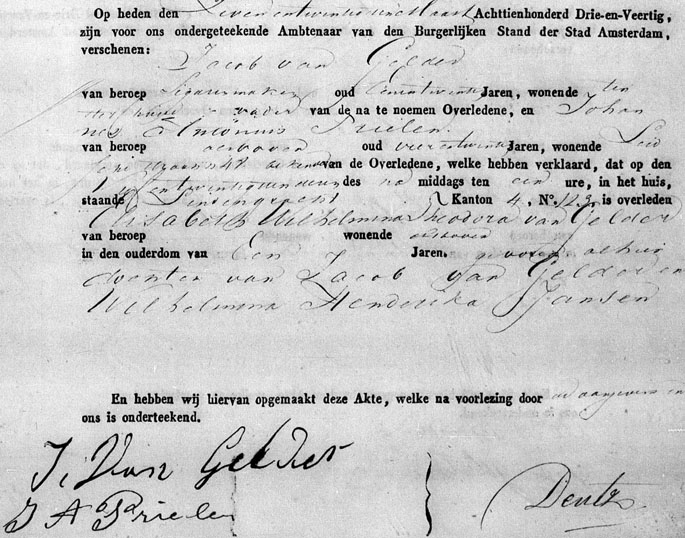 Op heden den Zevenentwintig Maart Achttienhonderd Drie-en-Veertig,
zijn voor ons ondergeteekende Ambtenaar van den Burgerlijken Stand der Stad Amsterdam,
verschenen:
Jacob van Gelder
van beroep Sigarenmaker oud Jaren, wonende ten
vader van de na te noemen Overledene, en Johan
nes Antonius Prielen
van beroep oud vierentwintig Jaren, wonende Leid
bekende van de Overledene, welke hebben verklaard, dat op den
dezer des na middags ten een ure, in het huis,
staande Lindengracht Kanton 4, N°. 123, is overleden
Elisabeth Wilhelmina Theodora van Gelder
van beroep wonende
in den ouderdom van Een Jaren. geboren alhier
dochter van Jacob van Gelder en
Wilhelmina Hendrika Jansen
En hebben wij hiervan opgemaakt deze Akte, welke na voorlezing door de aangevers en
ons is onderteekend.
J. Van Gelder
J A Prielen
Dentz